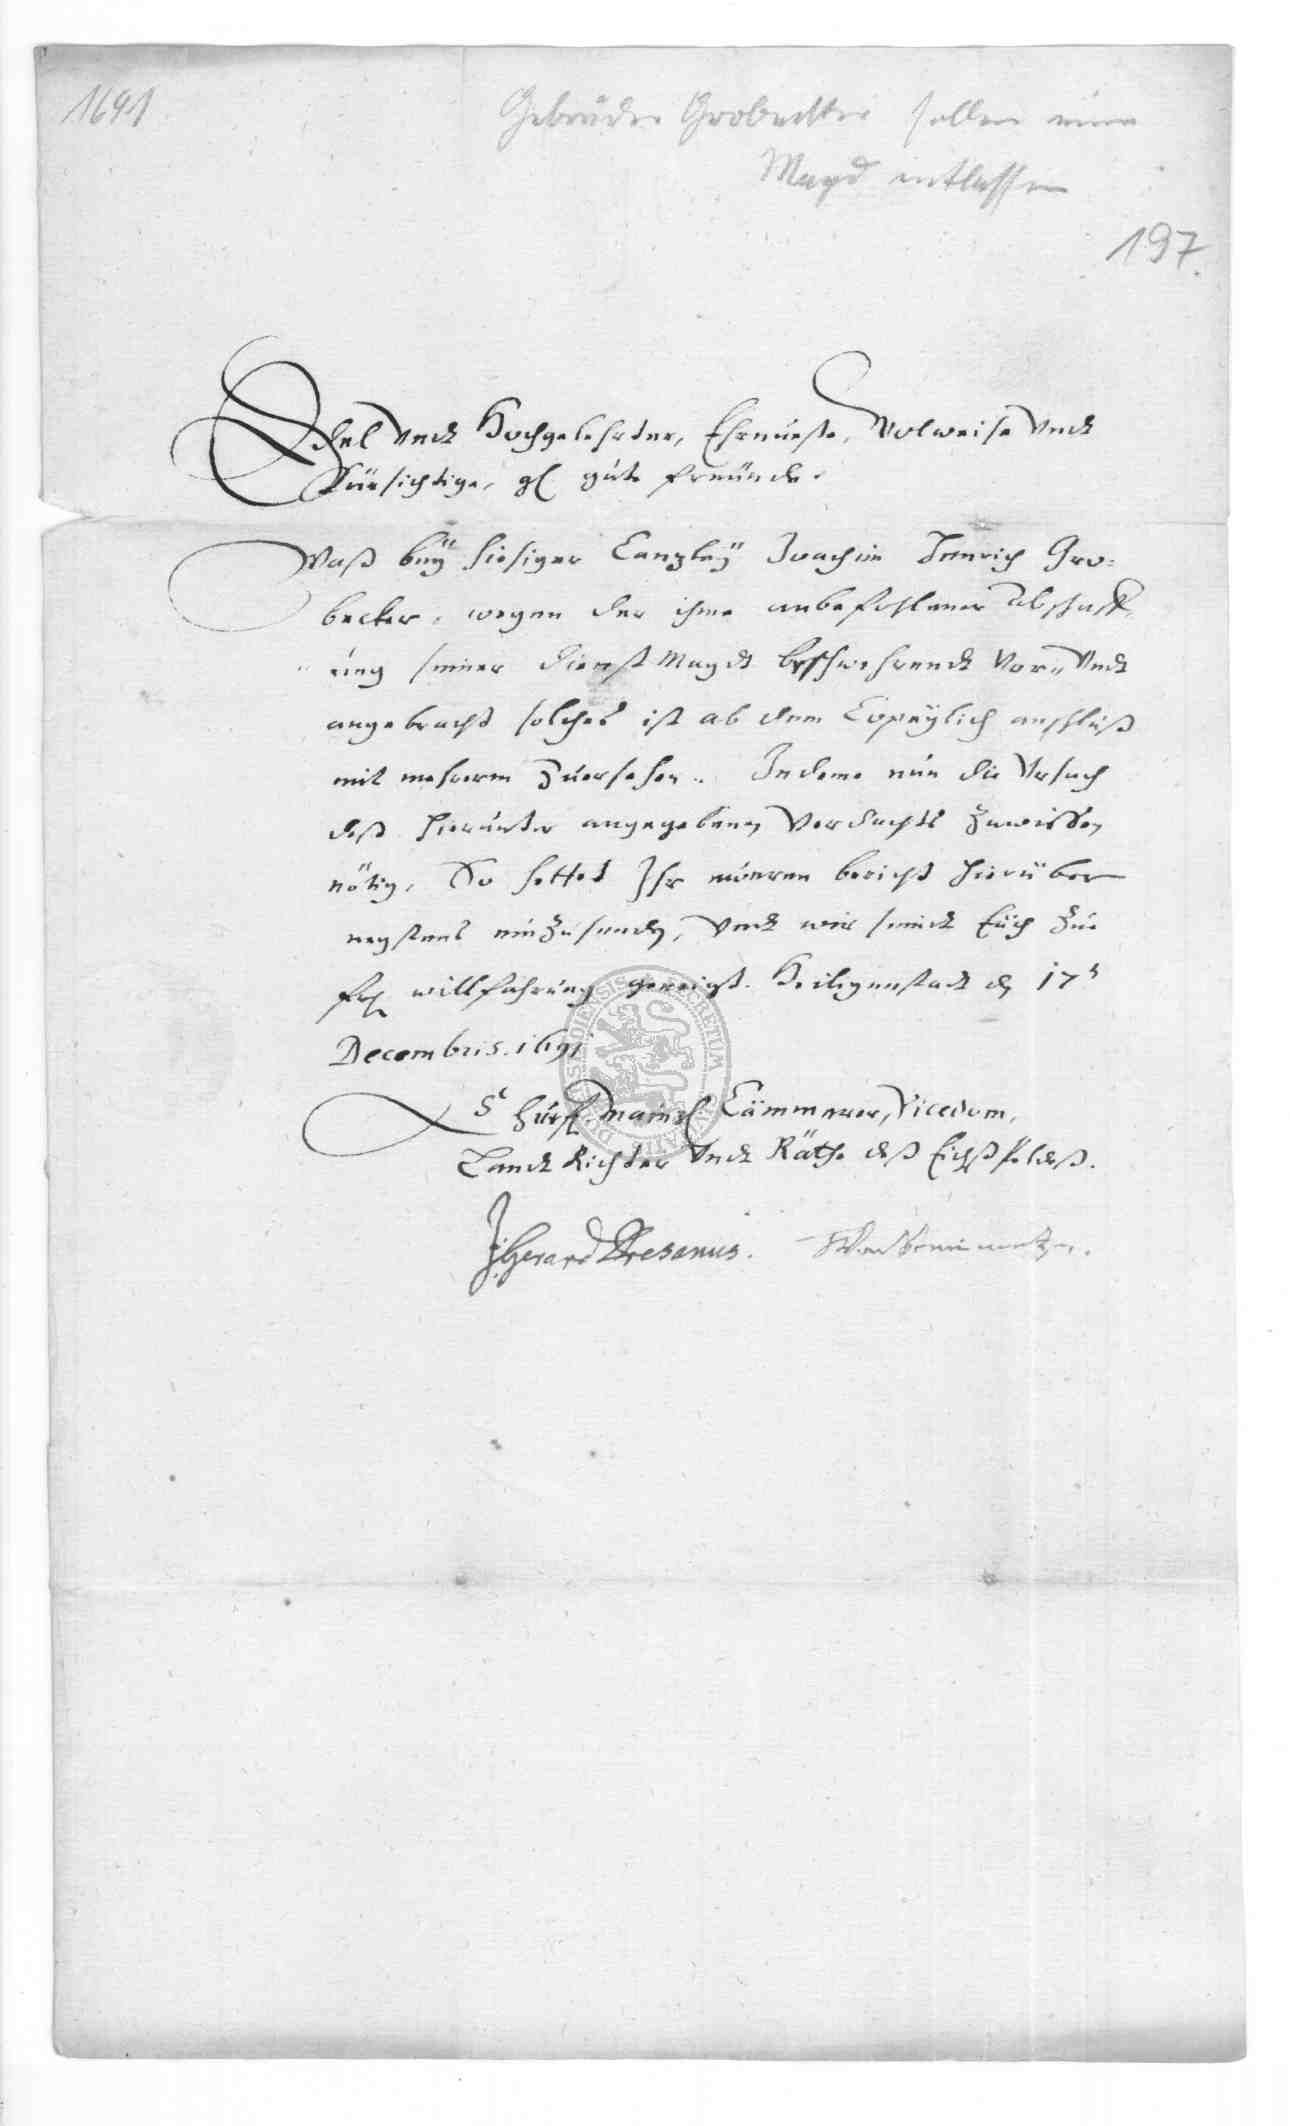 1691
Gebrüder Grobecker sollen eine
Magd entlassen
197.
Edel Vndt Hochgelehrter, Ehrnueste, Wolweise Vndt
Fürsichtige, gl gúte freünde.
Waß beÿ hiesiger Cantzleÿ Joachim Henrich Gro=
becker, wegen der ihme anbefohlener abschaff
úng seiner dienst Magdt beschwehrendt Vor= Vndt
angebracht solches ist ab dem Copeÿlich anschluß
mit mehrerm Zúersehen. Indeme nún die Vrsach
deß hierúnter angegebenen Verdachts Zuwissen
nötig, So hettet Ihr eúeren bericht hierüber
negstens einZúsenden, Vndt wir seindt Eüch Zúe
willfahrúng geneigt. Heiligenstadt den 17t
Decembris. 1691
Chúrfl. Maintzl Cämmerer, Vicedom,
Landt Richter Vndt Räthe deß Eichßfeldeß.